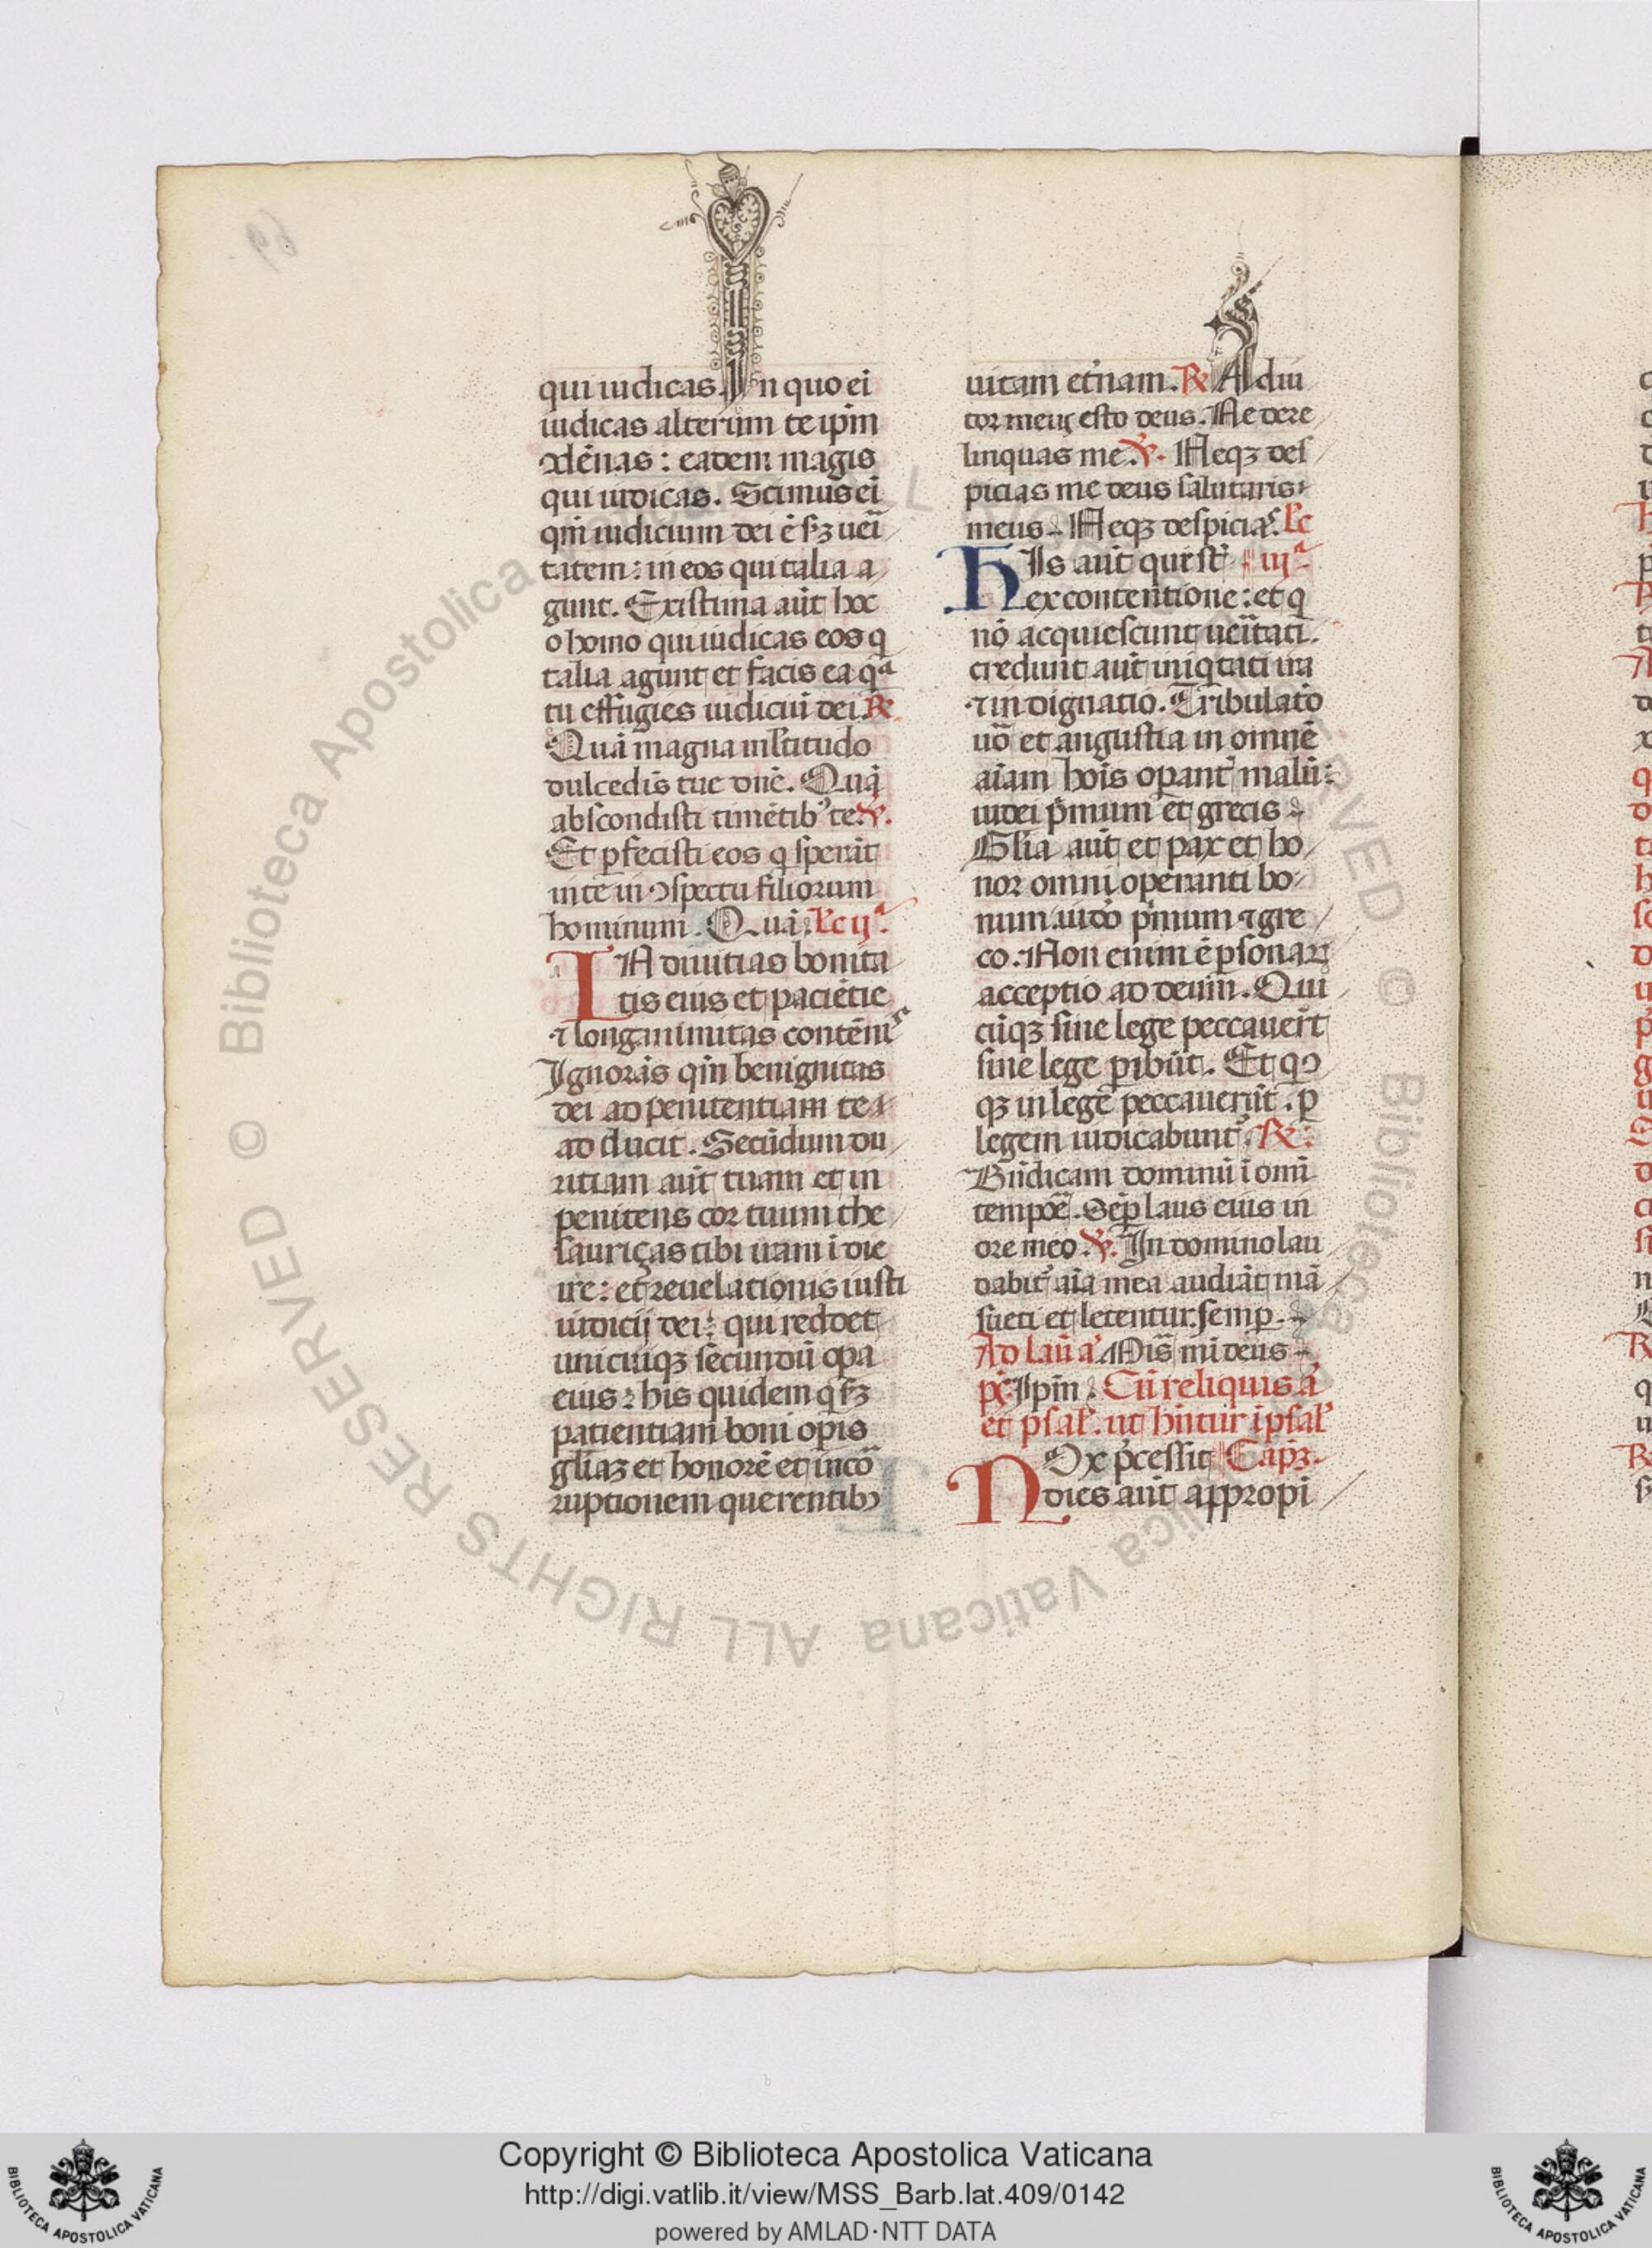 qui iudicas. In quo ei
iudicas alterum te ip̄m
ɔdēnas : eadem magis
qui iudicas. Scimus ei
qm̄ iudicium dei ē sꝫ uei
tatem : in eos qui talia a
gunt. Existima aūt hoc
o homo qui iudicas eos q
talia agunt et facis ea qa
tu effugies iudiciū dei. ℞
Quā magna ml̄titudo
dulcedis̄ tue dn̄e. Quā
abscondisti timētibꝰ te. ℣.
Et ꝑfecisti eos q sperāt
in te in ɔspectu filiorum
hominum. Quā. Lc ijª.
IN diuitias bonita
tis eius et paciētie
⁊ longanimitas contēnis
Ignoras qm̄ benignitas
dei ad penitentiam te
ad ducit. Secūdum du
ritiam aūt tuam et in
penitens cor tuum the
saurizas tibi iram ī die
ire : et reuelationis iusti
iudicij dei : qui reddet
unicuiqꝫ secundū oꝑa
eius : his quidem q sꝫ
patientiam boni oꝑis
gl̄iaꝫ et honorē et inco
ruptionem querentibꝫ
uitam et̓nam. ℞ Adiu
tor meus esto deus. Ne dere
linquas me. ℣. Neqꝫ des
picias me deus salutaris
meus. Neqꝫ despicias. Lc
HIs aūt qui sūt iijª.
ex contentione : et q
nō acquiescunt ueītati.
credunt aūt iniq̇tati ira
⁊ in dignatio. Tribulato
uō et angustia in omnē
aīam hoīs oꝑant̓ malū :
iudei p̓mum et grecis
Gl̄ia aūt et pax et ho
nor omni operanti bo
num. iudō p̓mum ⁊ gre
co. Non enim ē ꝑsonaꝝ
acceptio ad deum. Qui
cūqꝫ sine lege peccauer̄t
sine lege ꝑibūt. Et qͻ
qꝫ in lege peccauerūt. ꝑ
legem iudicabunt̓. ℞.
Bn̄dicam dominū ī omī
tempoē. Seꝑ laus eius in
ore meo. ℣. In domino lau
dabit̓ aīa mea audiāt mā
sueti et letentur. semꝑ.
Ad lau a᷎. Mis̄ mī deus
pꝭ. Ip̄m. Cū reliquis ā
et psal̓. ut hn̄tur ī psal̓
NOx p̓cessit Capꝫ.
dies aūt appropi
Copyright © Biblioteca Apostolica Vaticana
http://digi.vatlib.it/view/MSS_Barb.lat.409/0142
powered by AMLAD·NTT DATA
BIBLIOTECA APOSTOLICA VATICANA
BIBLIOTECA APOSTOLICA VATICANA